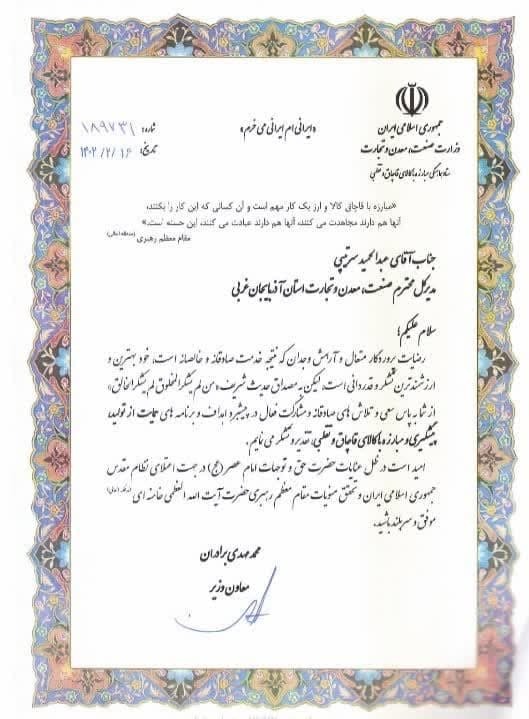 جمهوری اسلامی ایران
وزارت صنعت، معدن و تجارت
ستاد هماهنگی مبارزه با کالای قاچاق و تقلبی
«ایرانی ام ایرانی می خرم»
شماره: ۱۸۹۷۳۱
تاریخ: ۱۴۰۲/۲/۱۶
«مبارزه با قاچاق کالا و ارز یک کار مهم است و آن کسانی که این کار را بکنند،
آنها هم دارند مجاهدت می کنند، آنها هم دارند عبادت می کنند، این حسنه است.»
مقام معظم رهبری (مدظله العالی)
جناب آقای عبدالحمید سرتیپی
مدیرکل محترم صنعت، معدن و تجارت استان آذربایجان غربی
سلام علیکم؛
رضایت پروردگار متعال و آرامش وجدان که نتیجه خدمت صادقانه و خالصانه است، خود بهترین و
ارزشمندترین تشکر و قدردانی است، لیکن به مصداق حدیث شریف «من لم یشکر المخلوق لم یشکر الخالق»
از شما به پاس سعی و تلاش های صادقانه و مشارکت فعال در پیشبرد اهداف و برنامه های حمایت از تولید،
پیشگیری و مبارزه با کالای قاچاق و تقلبی، تقدیر و تشکر می نمایم.
امید است در ظل عنایات حضرت حق و توجهات امام عصر (عج) در جهت اعتلای نظام مقدس
جمهوری اسلامی ایران و تحقق منویات مقام معظم رهبری حضرت آیت الله العظمی خامنه ای
موفق و سربلند باشید.
محمد مهدی برادران
معاون وزیر